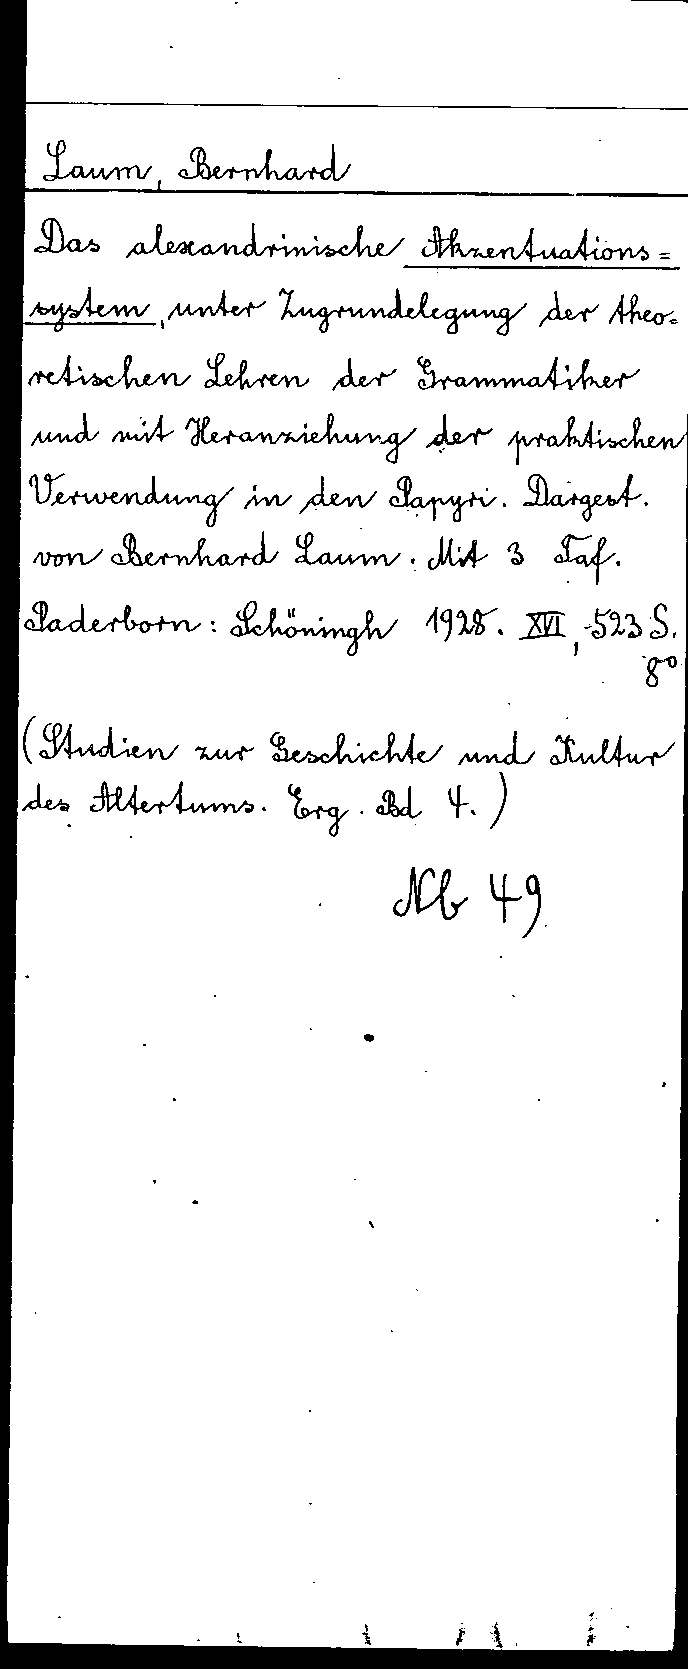 Laum, Bernhard
Das alexandrinische Akzentuations=
system, unter Zugrundelegung der theo=
retischen Lehren der Grammatiker
und mit Heranziehung der praktischen
Verwendung in den Papyri. Dargest.
von Bernhard Laum. Mit 3 Taf.
Paderborn: Schöningh 1928. XVI, 523 S.
8°
(Studien zur Geschichte und Kultur
des Altertums. Erg. Bd 4.)
Nb 49